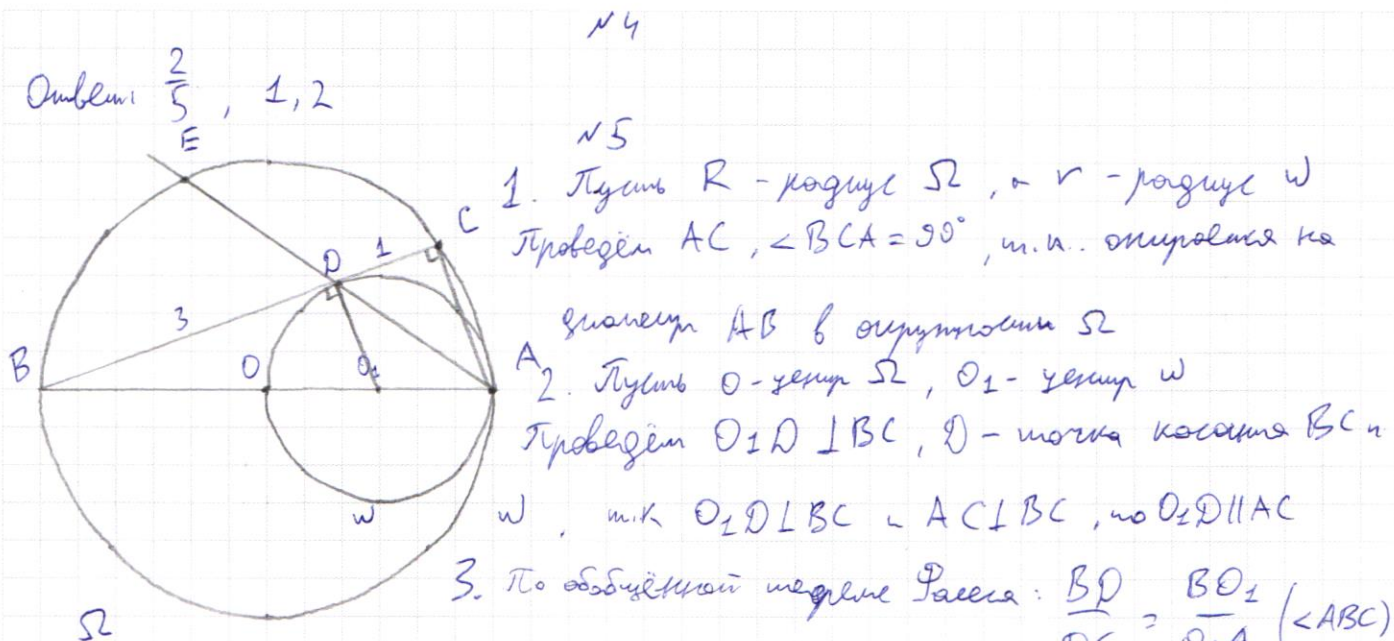 №4
Ответ: 2/5, 1, 2
№5
1. Пусть R - радиус Ω, а r - радиус ω
Проведём AC, ∠BCA = 90°, т.к. опирается на
диаметр AB в окружности Ω
2. Пусть O - центр Ω, O₁ - центр ω
Проведём O₁D ⊥ BC, D - точка касания BC и
ω, т.к O₁D ⊥ BC и AC ⊥ BC, то O₁D || AC
3. По обобщённой теореме Фалеса: BD/DC = BO₁/O₁A (∠ABC)
E
C
1
D
3
B
O
O₁
A
ω
Ω